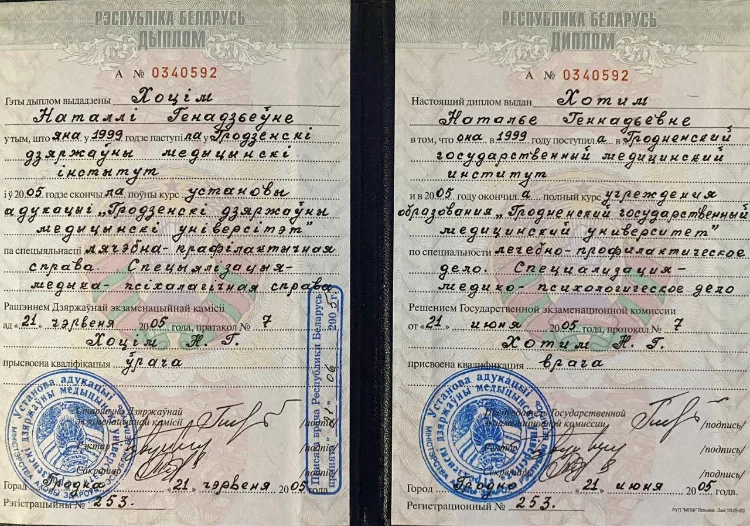 РЭСПУБЛІКА БЕЛАРУСЬ
ДЫПЛОМ
А № 0340592
Гэты дыплом выдадзены Хоцім
Наталлі Генадзьеўне
у тым, што яна у 1999 годзе паступіла у Гродзенскі
дзяржаўны медыцынскі
інстытут
і ў 2005 годзе скончыла поўны курс установы
адукацыі „Гродзенскі дзяржаўны
медыцынскі універсітэт"
па спецыяльнасці лячэбна-прафілактычная
справа. Спецыялізацыя-
медыка-псіхалагічная справа
Рашэннем Дзяржаўнай экзаменацыйнай камісіі
ад „21" чэрвеня 2005 года, пратакол № 7
Хоцім Н. Г.
прысвоена кваліфікацыя ўрача
Старшыня Дзяржаўнай
экзаменацыйнай камісіі /подпіс/
Рэктар /подпіс/
Сакратар /подпіс/
Горад Гродна „21" чэрвеня 2005 года.
Рэгістрацыйны № 253.
Присяга врача Республики Беларусь
принята "21" 06 2005 г.
РЕСПУБЛИКА БЕЛАРУСЬ
ДИПЛОМ
А № 0340592
Настоящий диплом выдан Хотим
Наталье Геннадьевне
в том, что она в 1999 году поступила в Гродненский
государственный медицинский
институт
и в 2005 году окончила полный курс учреждения
образования „Гродненский государственный
медицинский университет"
по специальности лечебно-профилактическое
дело. Специализация-
медико-психологическое дело
Решением Государственной экзаменационной комиссии
от „21" июня 2005 года, протокол № 7
Хотим Н. Г.
присвоена квалификация врача
Председатель Государственной
экзаменационной комиссии /подпись/
Ректор /подпись/
Секретарь /подпись/
Город Гродно „21" июня 2005 года.
Регистрационный № 253.